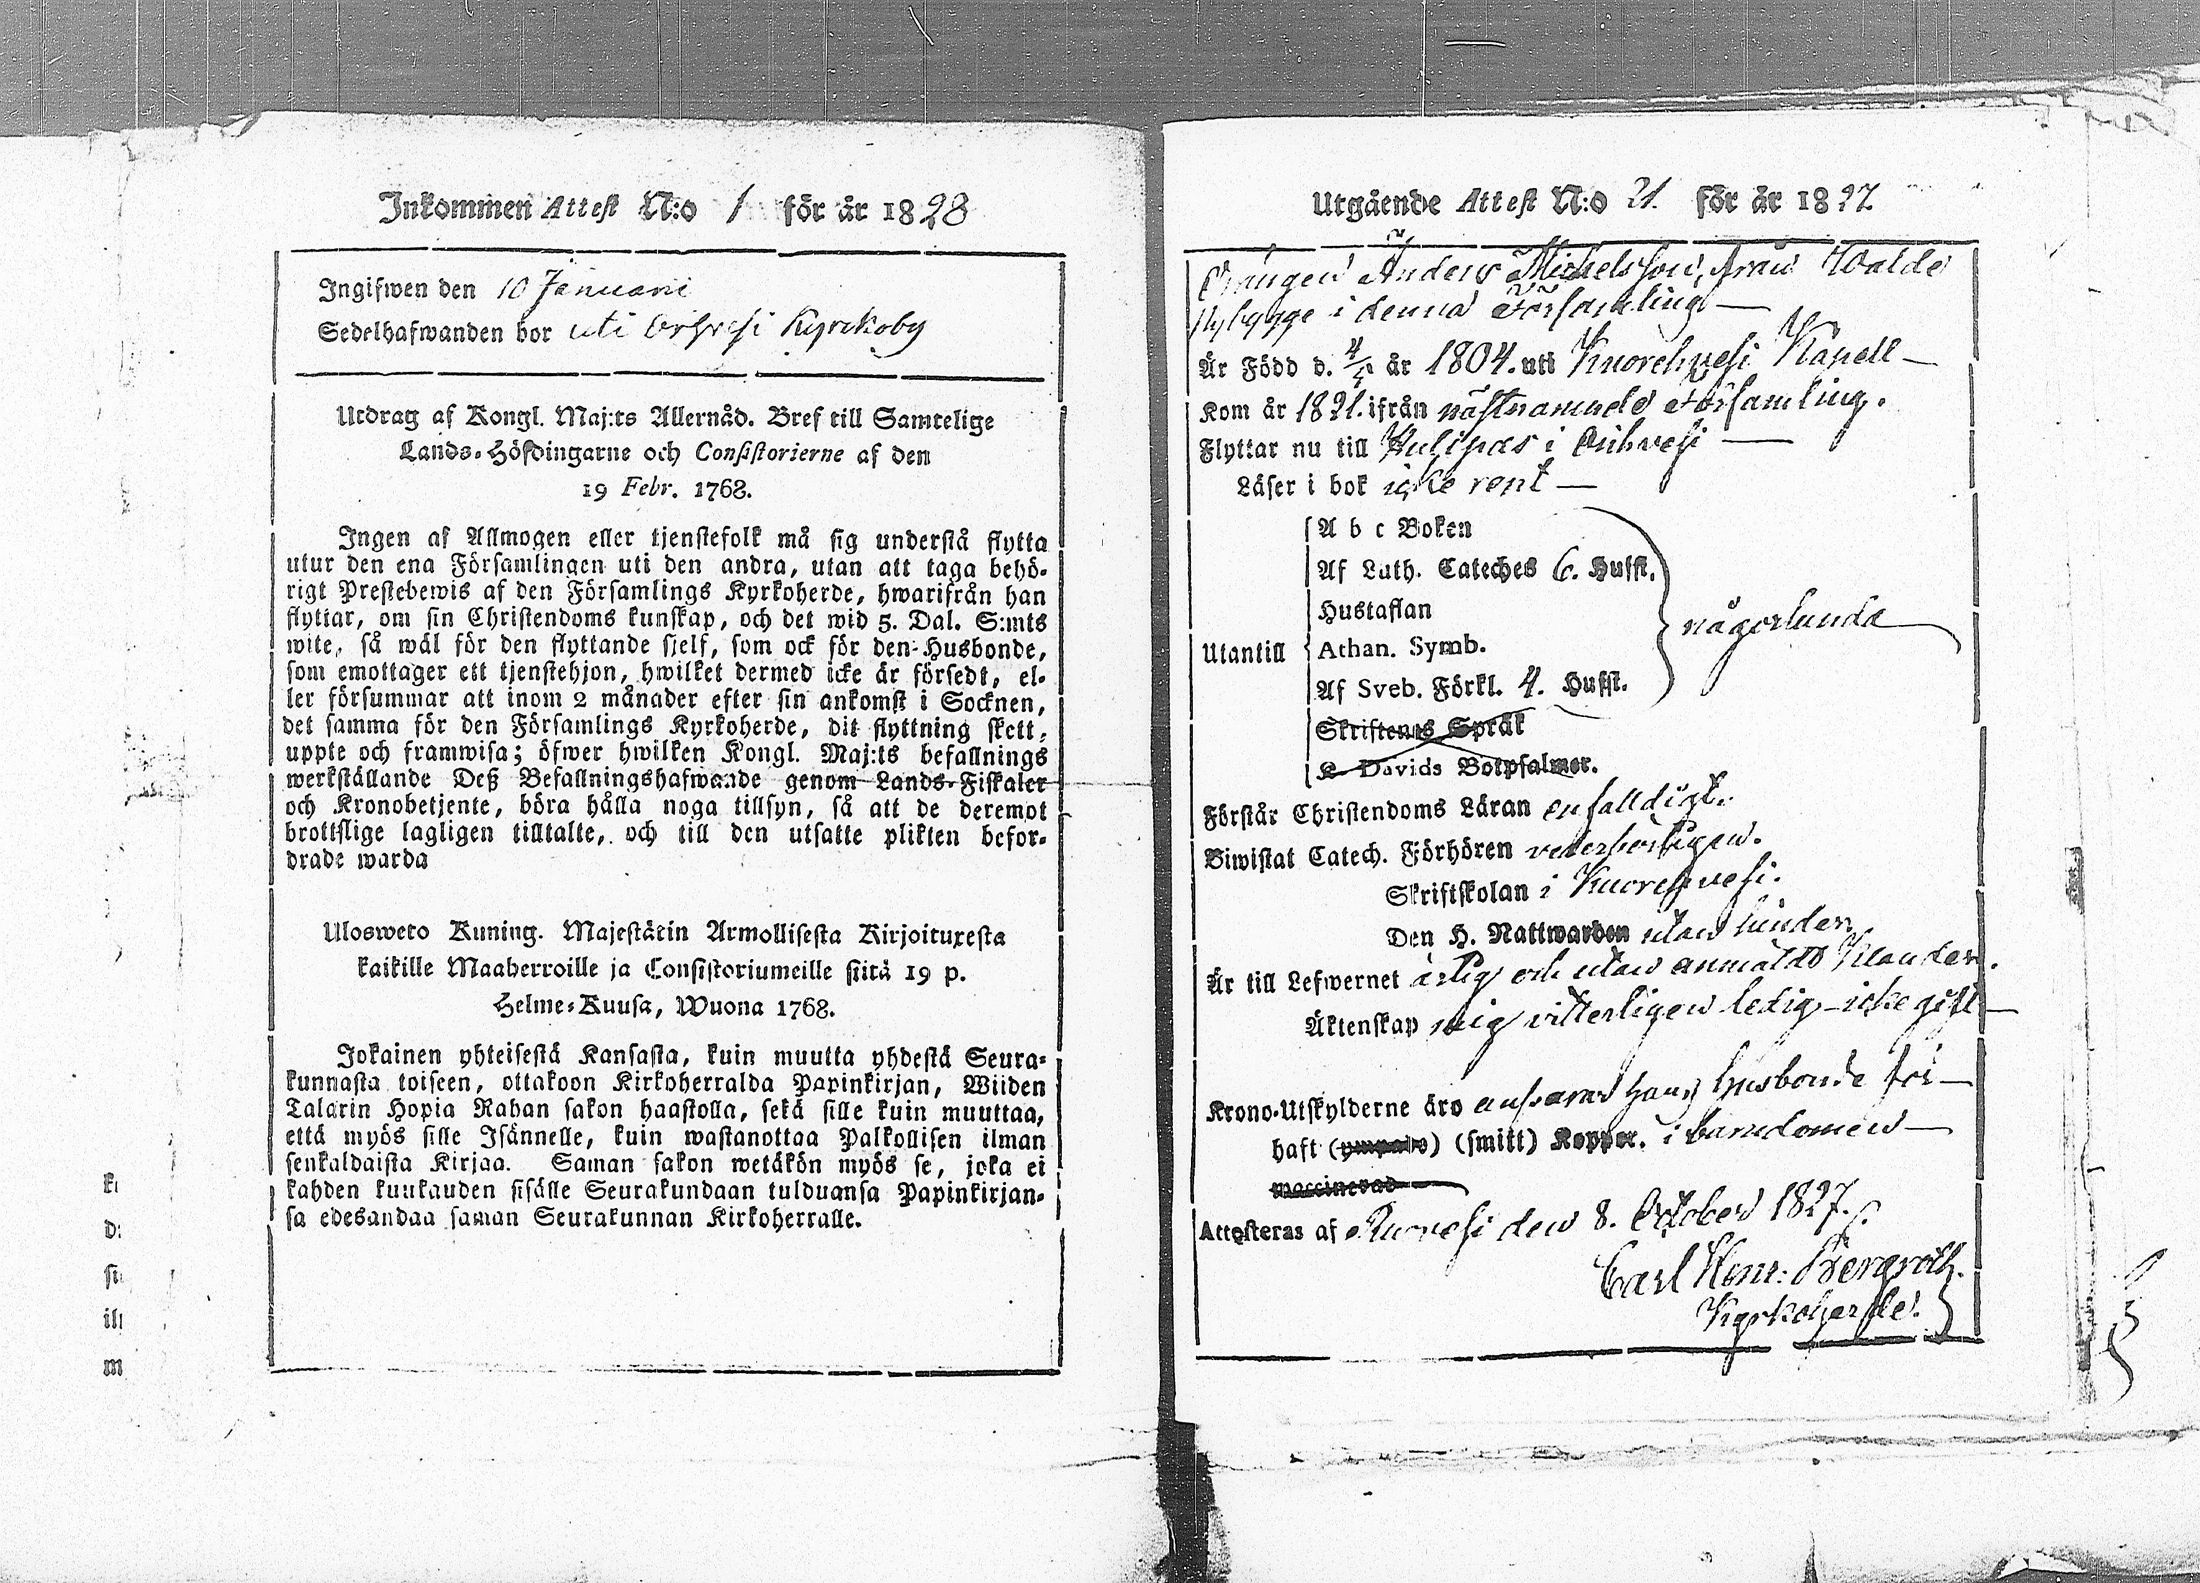 Inkommen Attest N:o 1 för år 1828
Ingifwen den 10 Januarii
Sedelhafwanden bor uti Orihvesi Kyrckoby
Utdrag af Kongl. Maj:ts Allernåd. Bref till Samtelige
Lands-Höfdingarne och Consistorierne af den
19 Febr. 1768.
Ingen af Allmogen eller tjenstefolk må sig understå flytta
utur den ena Församlingen uti den andra, utan att taga behö-
rigt Prestebewis af den Församlings Kyrkoherde, hwarifrån han
flyttar, om sin Christendoms kunskap, och det wid 5. Dal. S:mts
wite, så wäl för den flyttande sjelf, som ock för den Husbonde,
som emottager ett tjenstehjon, hwilket dermed icke är försedt, el-
ler försummar att inom 2 månader efter sin ankomst i Socknen,
det samma för den Församlings Kyrkoherde, dit flyttning skett,
uppte och framwisa; öfwer hwilken Kongl. Maj:ts befallnings
werkställande Deß Befallningshafwande genom Lands-Fiskaler
och Kronobetjente, böra hålla noga tillsyn, så att de deremot
brottslige lagligen tilltalte, och till den utsatte plikten befor-
drade warda
Ulosweto Kuning. Majestätin Armollisesta Kirjoituxesta
kaikille Maaherroille ja Consistoriumeille siitä 19 p.
Helme-Kuusa, Wuona 1768.
Jokainen yhteisestä Kansasta, kuin muutta yhdestä Seura-
kunnasta toiseen, ottakoon Kirkoherralda Papinkirjan, Wiiden
Talarin Hopia Rahan sakon haastolla, sekä sille kuin muuttaa,
että myös sille Isännelle, kuin wastanottaa Palkollisen ilman
senkaldaista Kirjaa. Saman sakon wetäkön myös se, joka ei
kahden kuukauden sisälle Seurakundaan tulduansa Papinkirjan-
sa edesandaa saman Seurakunnan Kirkoherralle.
Utgående Attest N:o 21. för år 1827.
Drängen Anders Michelsson, från Walde
Nybygge i denna Församling
Är Född d. 4/5 år 1804. uti Kuorehvesi Kapell
Kom år 1821. ifrån nästnamnde Församling.
Flyttar nu till Hulipas i Orihvesi
Läser i bok icke rent
A b c Boken
Af Luth. Cateches 6. Hufst.
Hustaflan
Utantill Athan. Symb. någorlunda
Af Sveb. Förkl. 4. Hufst.
Skriftenes Språk
K. Davids Botpsalmer.
Förstår Christendoms Läran enfalldigt.
Biwistat Catech. Förhören vederbörligen.
Skriftskolan i Kuorehvesi.
Den H. Nattwarden utan hinder
Är till Lefwernet ärlig och utan anmäldt klander.
Äktenskap mig vitterligen ledig - icke gift
Krono-Utskylderne äro ansvarar hans Husbonde för
haft (ympade) (smitt) Koppor. i barndomen
vaccinerad
Attesteras af Ruovesi den 8. October 1827.
Carl Henr: Bergroth.
Kyrkoherde.